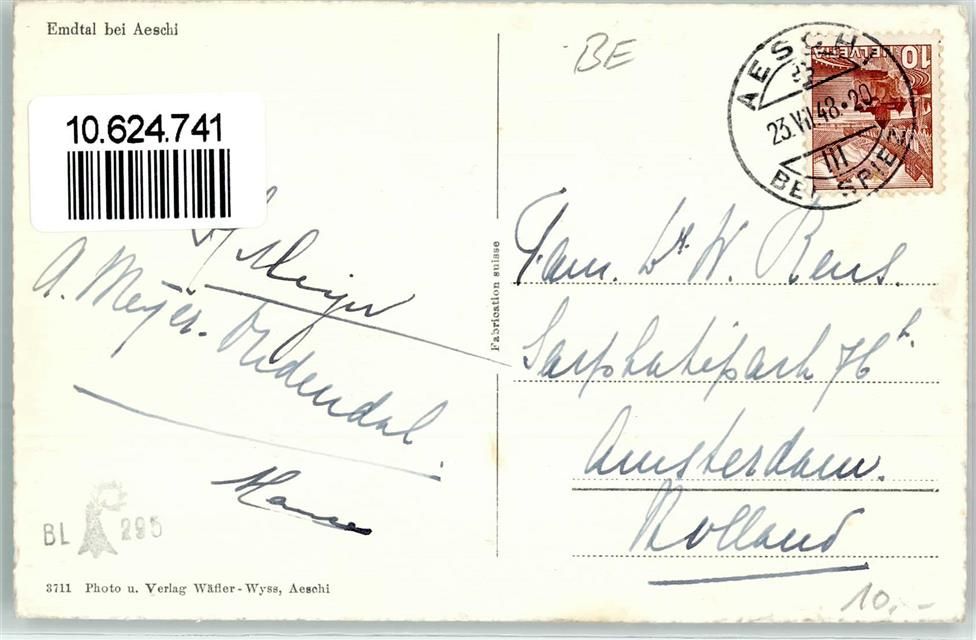 Emdtal bei Aeschi
BE
AESCHI
23.VII.48·20
III
BEI SPIEZ
10
HELVETIA
10.624.741
Meijer
A. Meyer. Oudendal.
Hans
Fam. Dr W. Rens.
Sarphatipark 76 h.
Amsterdam.
Holland
Fabrication suisse
BL 295
3711 Photo u. Verlag Wäfler-Wyss, Aeschi
10.-